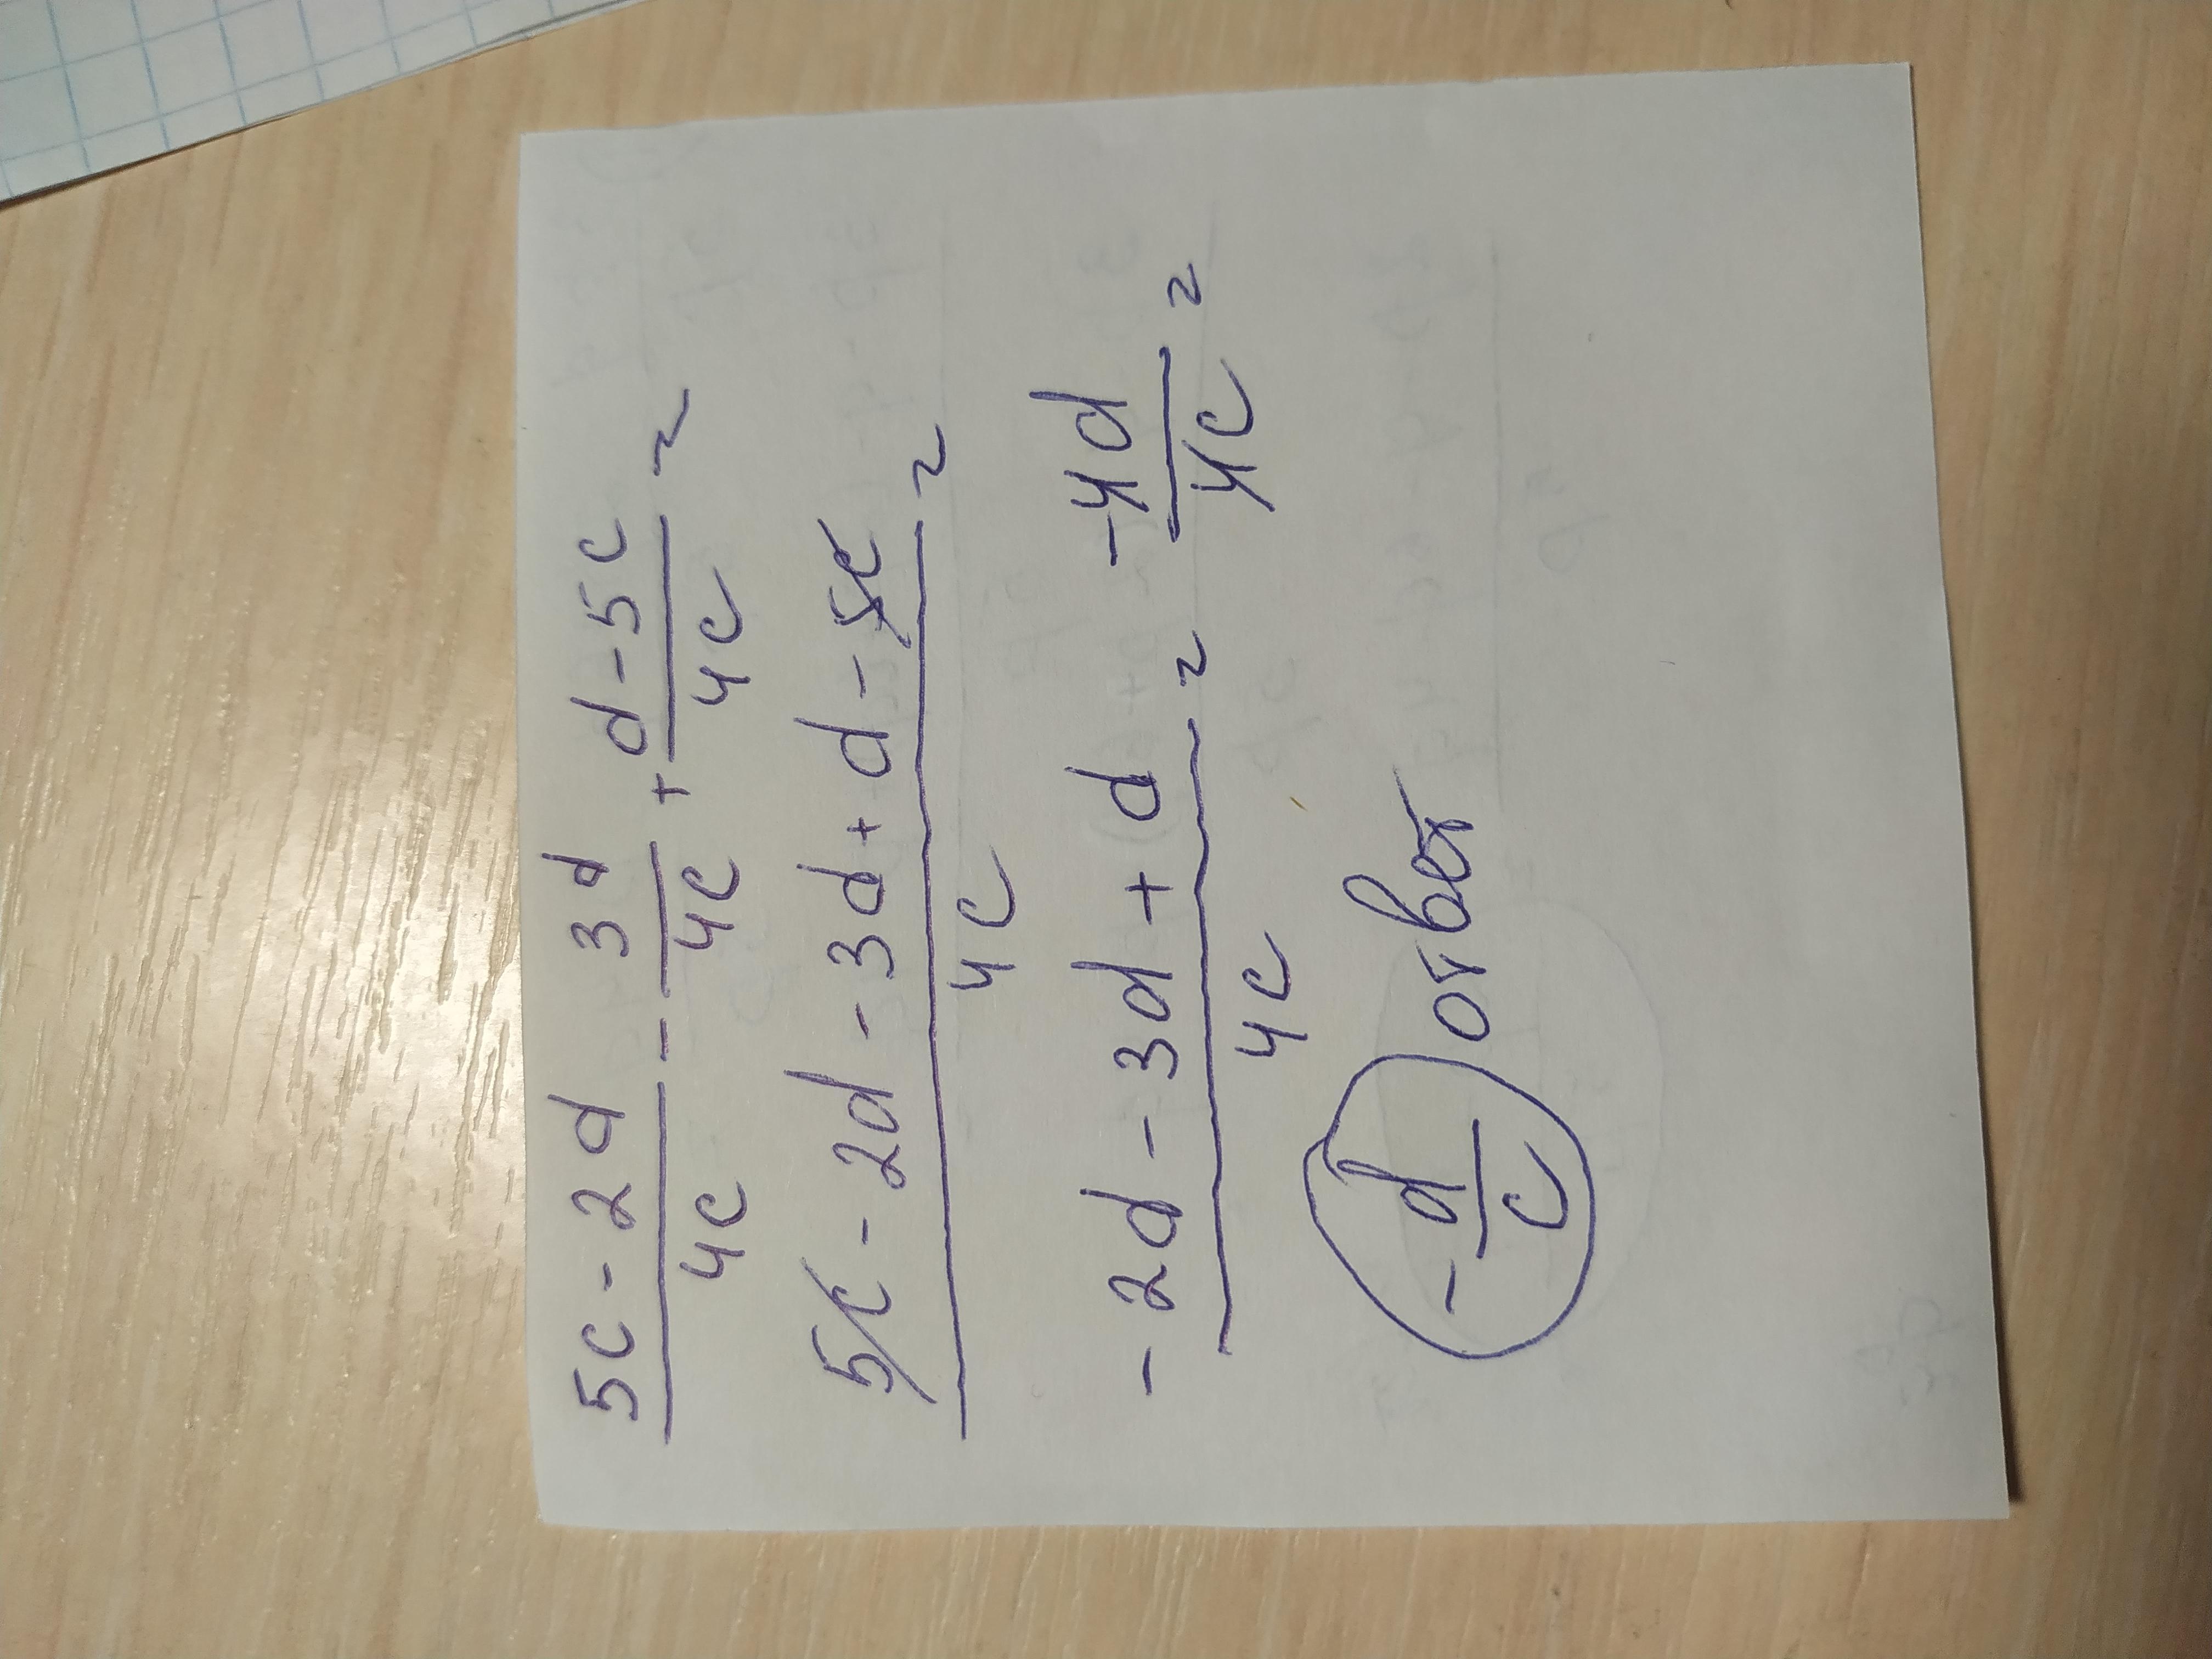 (5c - 2d)/4c - 3d/4c + (d - 5c)/4c =
(5c - 2d - 3d + d - 5c)/4c =
(-2d - 3d + d)/4c = -4d/4c =
-d/c ответ